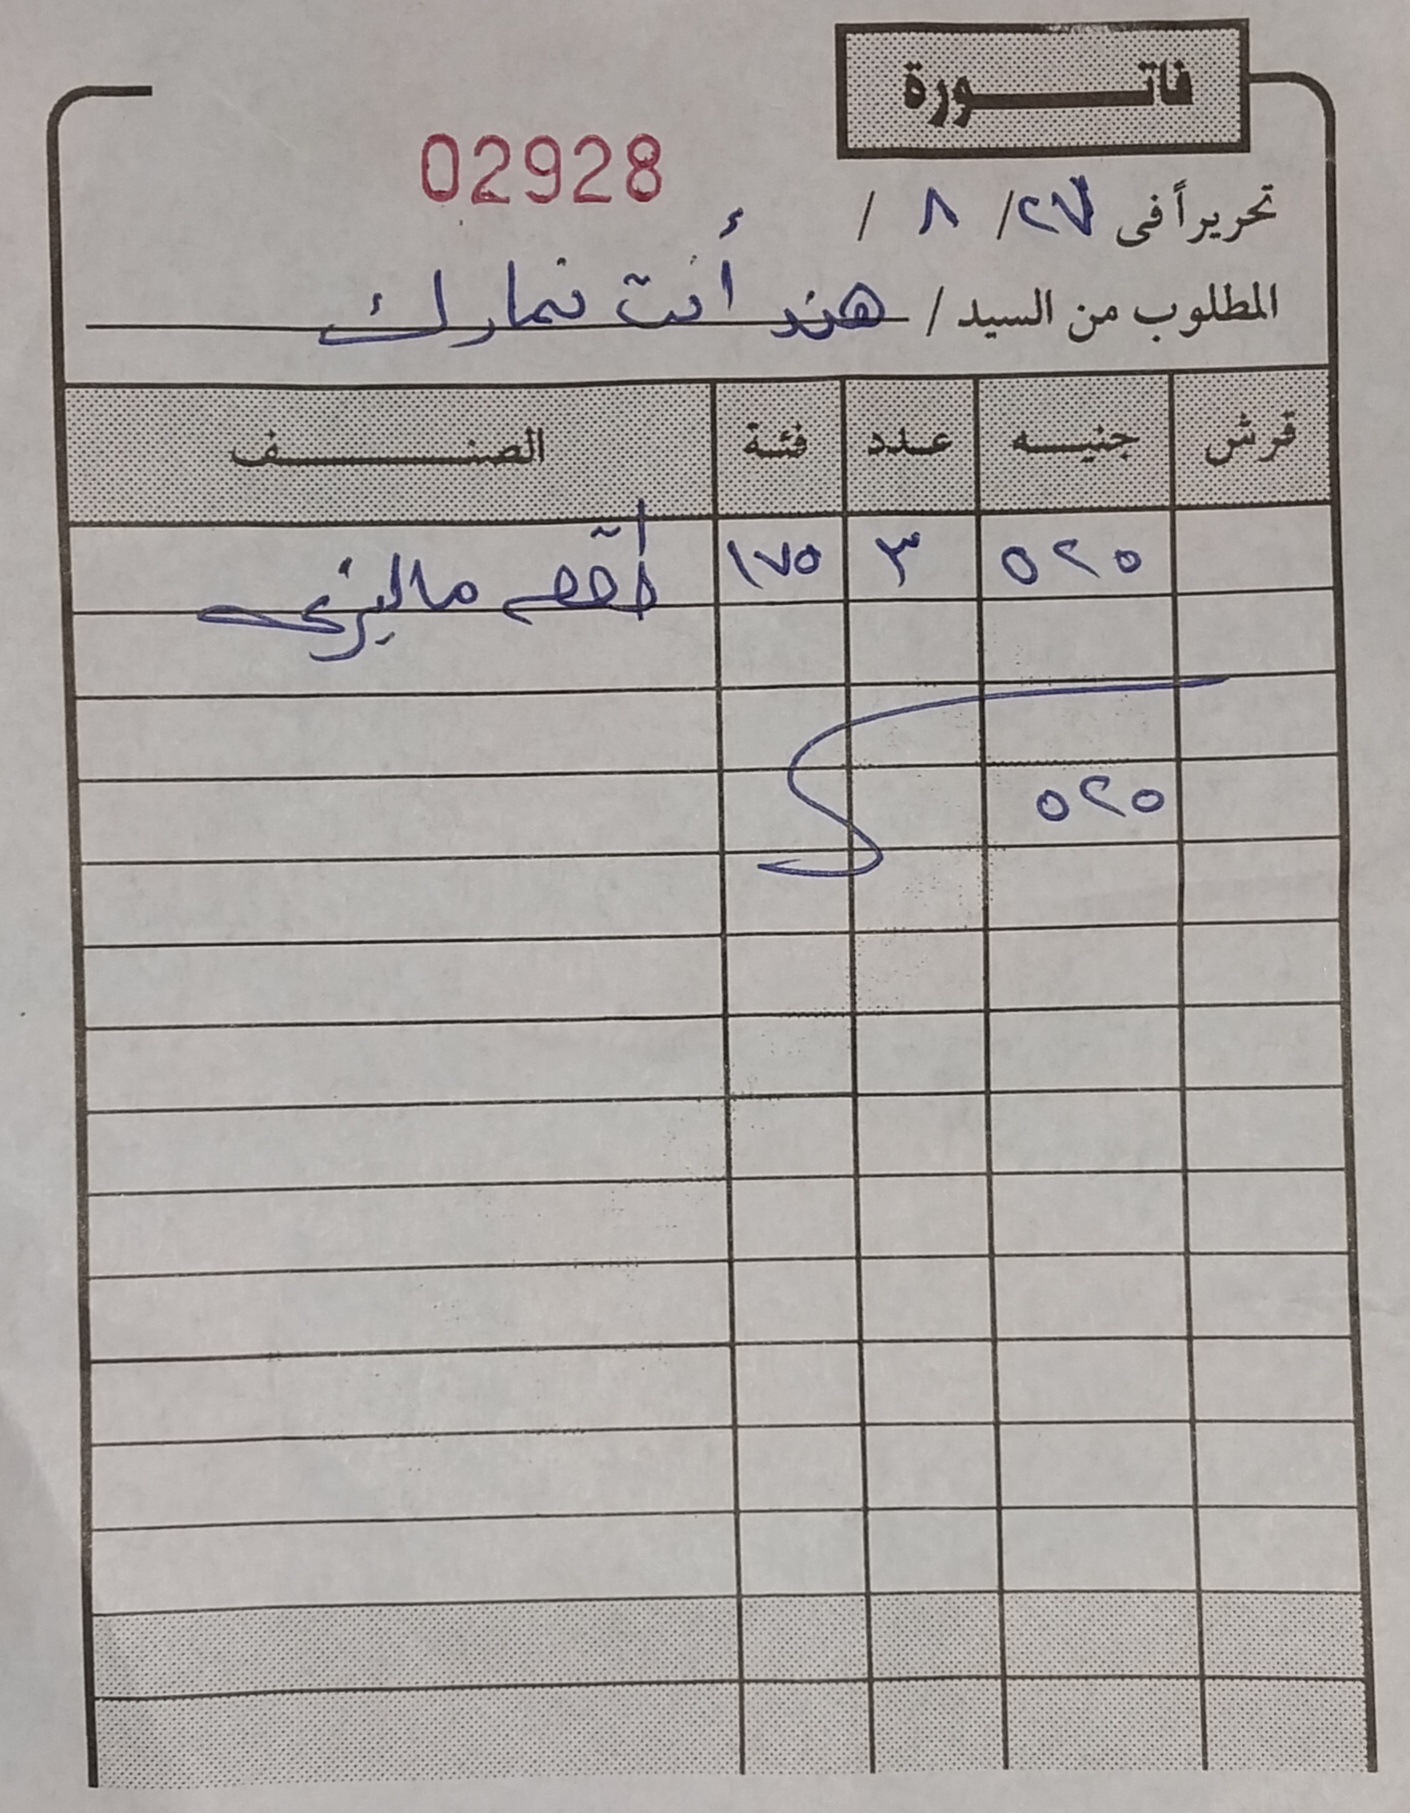 فاتورة
02928
تحريراً فى ٢٧ / ٨ /
المطلوب من السيد / هند أنت نمارك
قرش جنيه عدد فئة الصنف
٥٢٥ ٣ ١٧٥ طقم ماليزى
٥٢٥